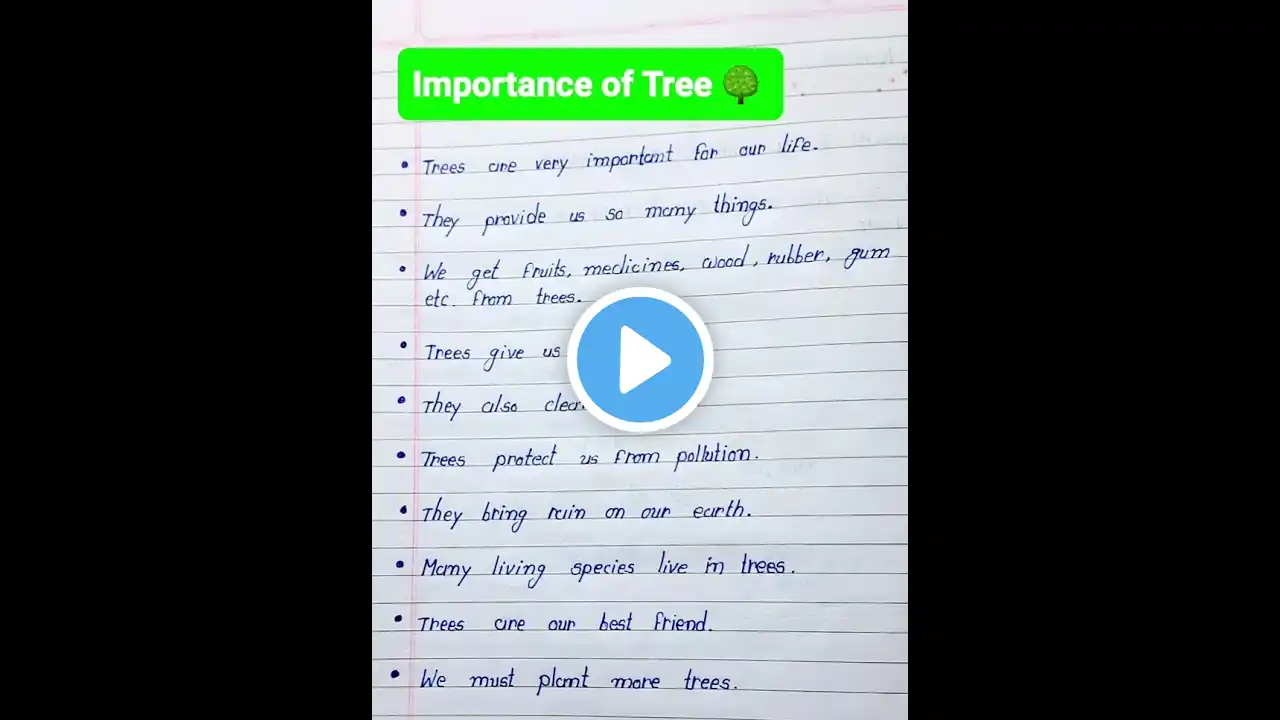 Importance of Tree
• Trees are very important for our life.
• They provide us so many things.
• We get fruits, medicines, wood, rubber, gum
etc. from trees.
• Trees give us
• They also
• Trees protect us from pollution.
• They bring rain on our earth.
• Many living species live in trees.
• Trees are our best friend.
• We must plant more trees.